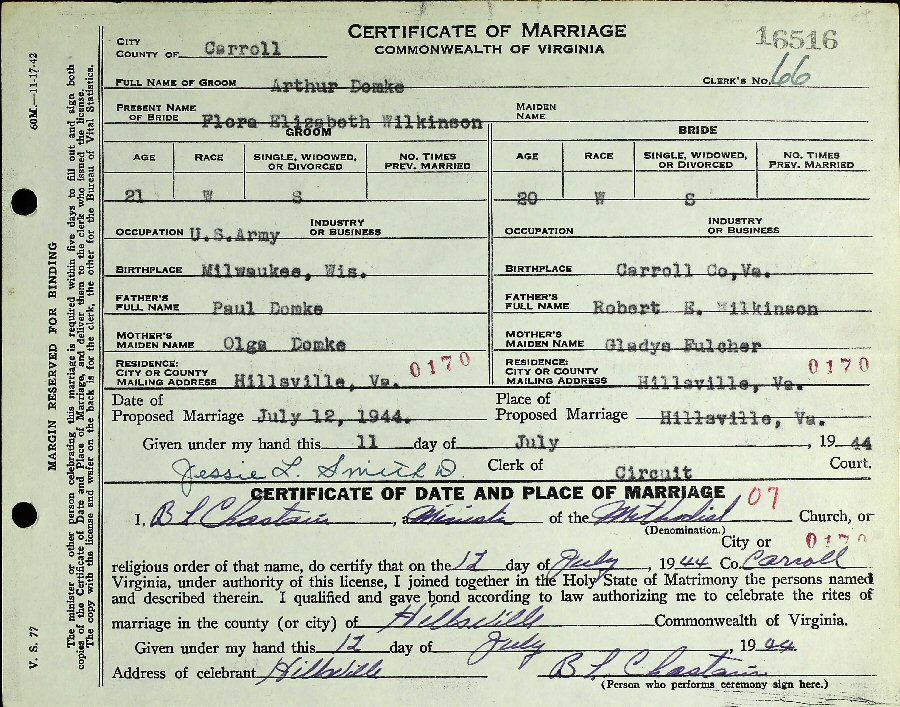 CERTIFICATE OF MARRIAGE
COMMONWEALTH OF VIRGINIA
16516
CITY
COUNTY OF Carroll
CLERK'S NO. 66
FULL NAME OF GROOM Arthur Domke
PRESENT NAME OF BRIDE Flora Elizabeth Wilkinson MAIDEN NAME
GROOM BRIDE
AGE RACE SINGLE, WIDOWED, OR DIVORCED NO. TIMES PREV. MARRIED AGE RACE SINGLE, WIDOWED, OR DIVORCED NO. TIMES PREV. MARRIED
21 W S 20 W S
OCCUPATION U.S.Army INDUSTRY OR BUSINESS OCCUPATION INDUSTRY OR BUSINESS
BIRTHPLACE Milwaukee, Wis. BIRTHPLACE Carroll Co,Va.
FATHER'S FULL NAME Paul Domke FATHER'S FULL NAME Robert E. Wilkinson
MOTHER'S MAIDEN NAME Olga Domke MOTHER'S MAIDEN NAME Gladys Fulcher
RESIDENCE: CITY OR COUNTY MAILING ADDRESS Hillsville, Va. 0170 RESIDENCE: CITY OR COUNTY MAILING ADDRESS Hillsville, Va. 0170
Date of Proposed Marriage July 12, 1944. Place of Proposed Marriage Hillsville, Va.
Given under my hand this 11 day of July, 19 44
Jessie L. Smith D Clerk of Circuit Court.
CERTIFICATE OF DATE AND PLACE OF MARRIAGE 07
I, B L Chastain, a Minister of the Methodist Church, or
(Denomination.)
City or 0170
religious order of that name, do certify that on the 12 day of July, 1944 Co. Carroll
Virginia, under authority of this license, I joined together in the Holy State of Matrimony the persons named
and described therein. I qualified and gave bond according to law authorizing me to celebrate the rites of
marriage in the county (or city) of Hillsville Commonwealth of Virginia.
Given under my hand this 12 day of July, 1944.
Address of celebrant Hillsville B L Chastain
(Person who performs ceremony sign here.)
60M.—11-17-42
MARGIN RESERVED FOR BINDING
V. S. 77
The minister or other person celebrating this marriage is required within five days to fill out and sign both
copies of the Certificate of Date and Place of Marriage, and deliver them to the clerk who issued the license.
The copy with the license and wafer on the back is for the clerk, the other for the Bureau of Vital Statistics.